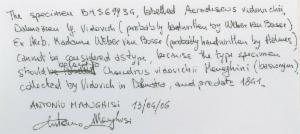 The specimen BM569934, labelled Acrodiscus vidovichii,
Dalmatien leg. Vidovich (probably handwritten by Weber Van Bosse)
Ex Herb. Madame Weber van Bosse (probably handwritten by Holmes)
cannot be considered as type, because the type specimen
should belong to Chondrus vidovichii Meneghini (basionym)
collected by Vidovich in Dalmatia, and predate 1841.
ANTONIO MANGHISI 13/06/06
Antonio Manghisi